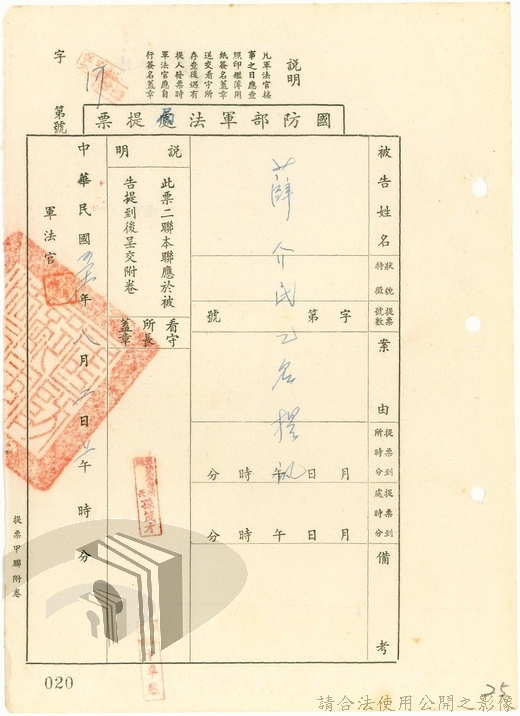 說明
凡軍法官接
事之日應查
照印鑑簿用
紙簽名蓋章
送交看守所
存查後遇有
提人發票時
軍法官應自
行簽名蓋章
字
17
第號
國防部軍法局提票
被告姓名
狀貌特徵
提票號數
案由
提票到所時分
提票到處時分
備考
薛介民乙名提訊
字第號
月日午時分
月日午時分
說明
此票二聯本聯應於被
告提到後呈交附卷
看守所長蓋章
中華民國年八月日上午時分
軍法官
提票甲聯附卷
020
25
請合法使用公開之影像